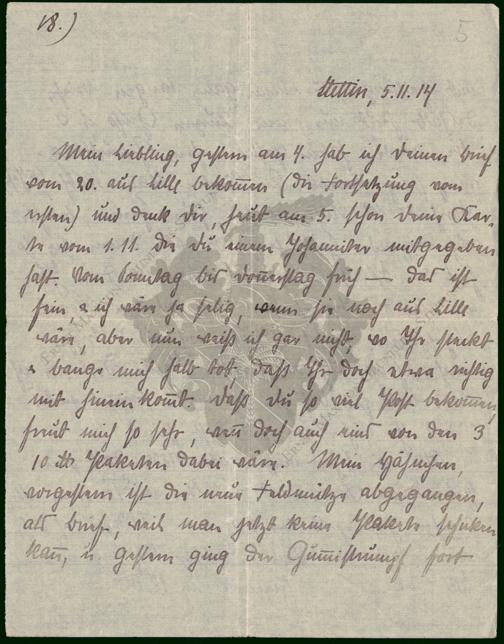 18.)
5
Stettin, 5.11.14
Mein Liebling, gestern am 4. hab ich Deinen Brief
vom 20. aus Lille bekom̅en (die Fortsetzung vom
ersten) und denk dir, heut am 5. schon Deine Kar-
te vom 1.11. die Du einem Johanniter mitgegeben
hast. Vom Sonntag bis Don̅erstag früh — das ist
fein u ich wäre ja selig, wenn sie noch aus Lille
wäre, aber nun weiß ich gar nicht, wo Ihr steckt
u bange mich halb tot, daß Ihr doch etwa richtig
mit hineinkom̅t. Daß Du so viel Post bekom̅en,
freut mich so sehr, wen̅ doch auch eins von den 3
10 Paketen dabei wäre. Mein
vorgestern ist die neue Feldmütze abgegangen,
als Brief, weil man jetzt keine Pakete schicken
kan̅, u gestern ging der Gum̅istrumpf fort